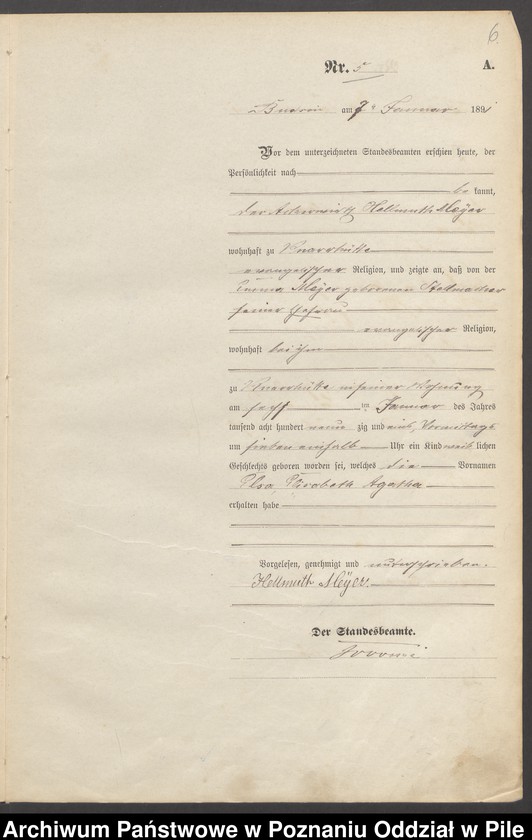 6.
Nr. 5
A.
am 7. Januar 1891
Vor dem unterzeichneten Standesbeamten erschien heute, der
Persönlichkeit nach
bekannt,
der Ackerwirth Hellmuth Meÿer
wohnhaft zu Knarrhütte
evangelischer Religion, und zeigte an, daß von der
Emma Meÿer geborenen Stellmacher
seiner Ehefrau
evangelischer Religion,
wohnhaft bei ihm
zu Knarrhütte in seiner Wohnung
am sechs im Januar des Jahres
tausend acht hundert neun zig und eins, Vormittags
um sieben einhalb Uhr ein Kind weiblichen
Geschlechts geboren worden sei, welches die Vornamen
Elsa, Elisabeth Agatha
erhalten habe
Vorgelesen, genehmigt und unterschrieben.
Hellmuth Meÿer.
Der Standesbeamte.
Archiwum Państwowe w Poznaniu Oddział w Pile